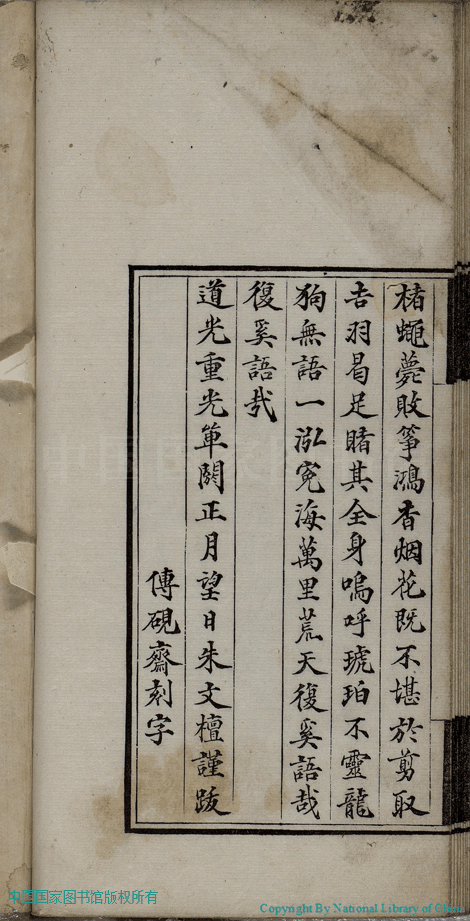 楮蠅薨敗箏鴻香烟花既不堪於剪取
吉羽曷足睹其全身嗚呼琥珀不靈龍
狗無語一泓寃海萬里荒天復奚語哉
復奚語哉
道光重光單閼正月望日朱文檀謹跋
傳硯齋刻字
中国国家图书馆版权所有
Copyright By National Library of China